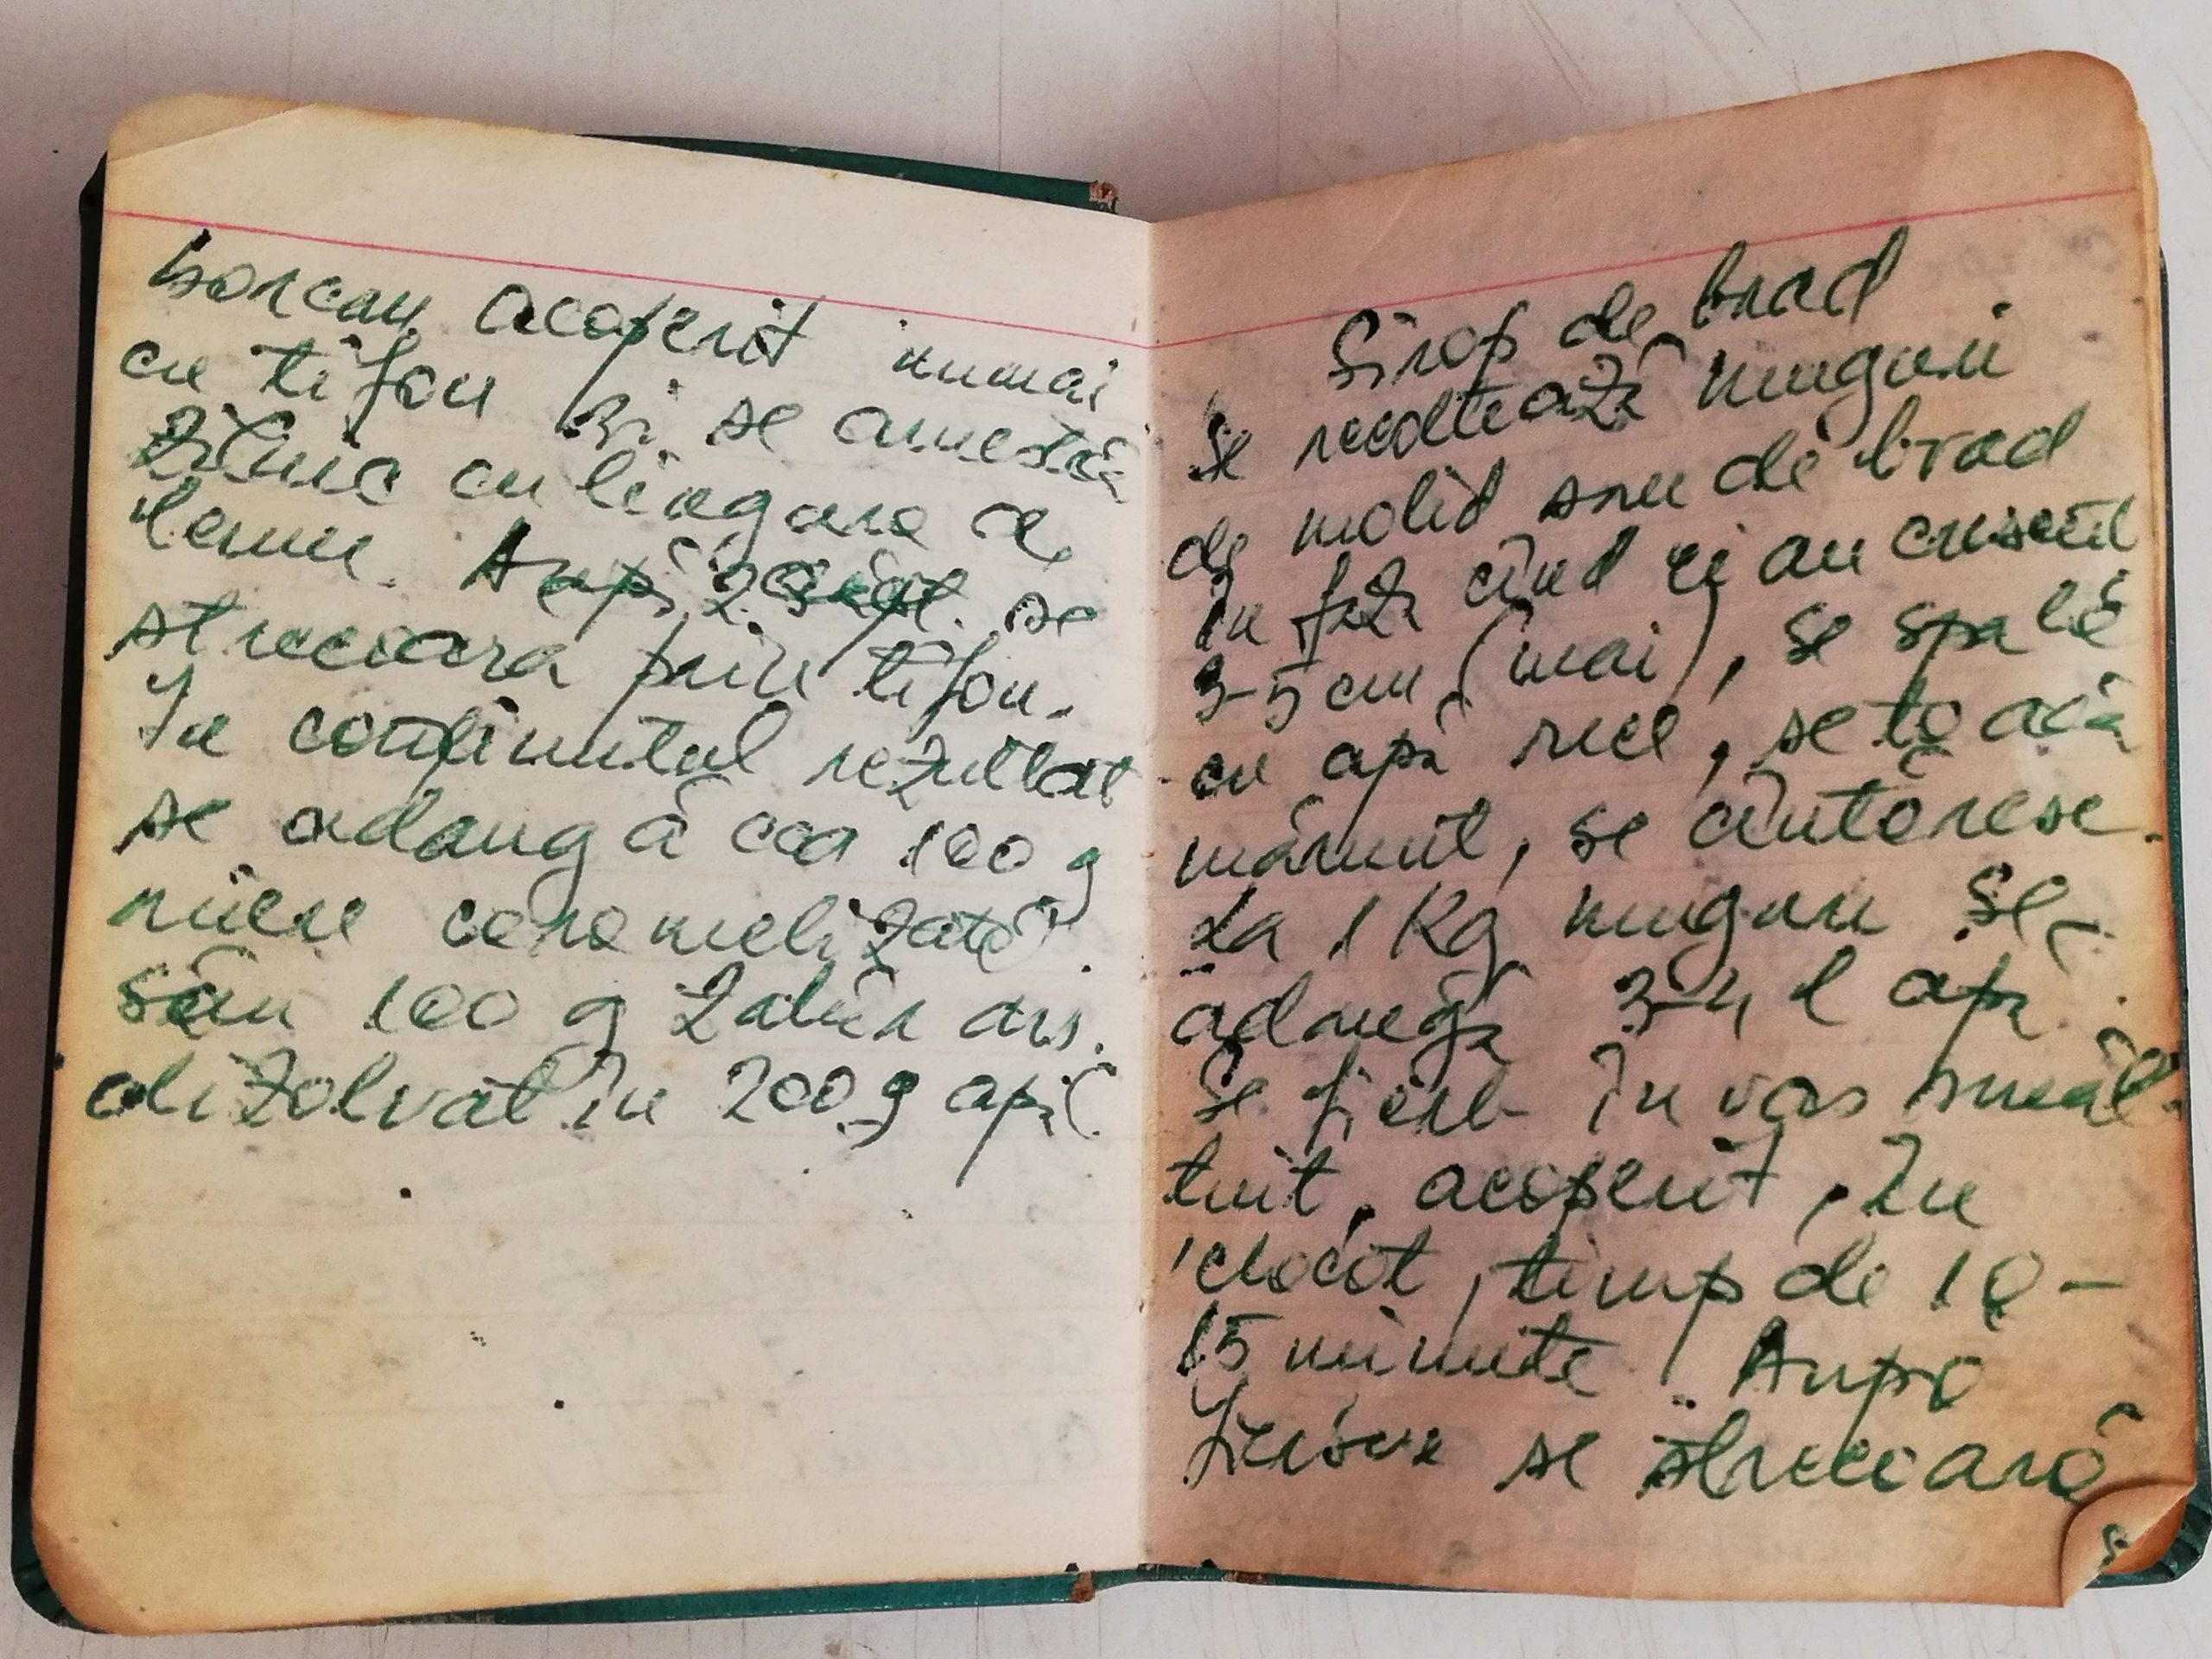 borcan acoperit numai
cu tifon și se amestică
zilnic cu lingura de
lemn. După 2 săpt. se
strecoara prin tifon.
In conținutul rezultat
se adaugă cca 100 g
miere caramelizată
sau 100 g zahăr ars.
dizolvat în 200 g apă
Sirop de brad
Se recoltează muguri
de molid sau de brad
în fază cînd ei au crescut
3-5 cm (mai), se spală
cu apă rece, se toacă
mărunt, se cîntăresc.
La 1 Kg muguri se
adaugă 3-4 l apă.
Se fierb în vas smăl-
tuit, acoperit, în
clocot, timp de 10-
15 minute. După
fierbere se strecoară